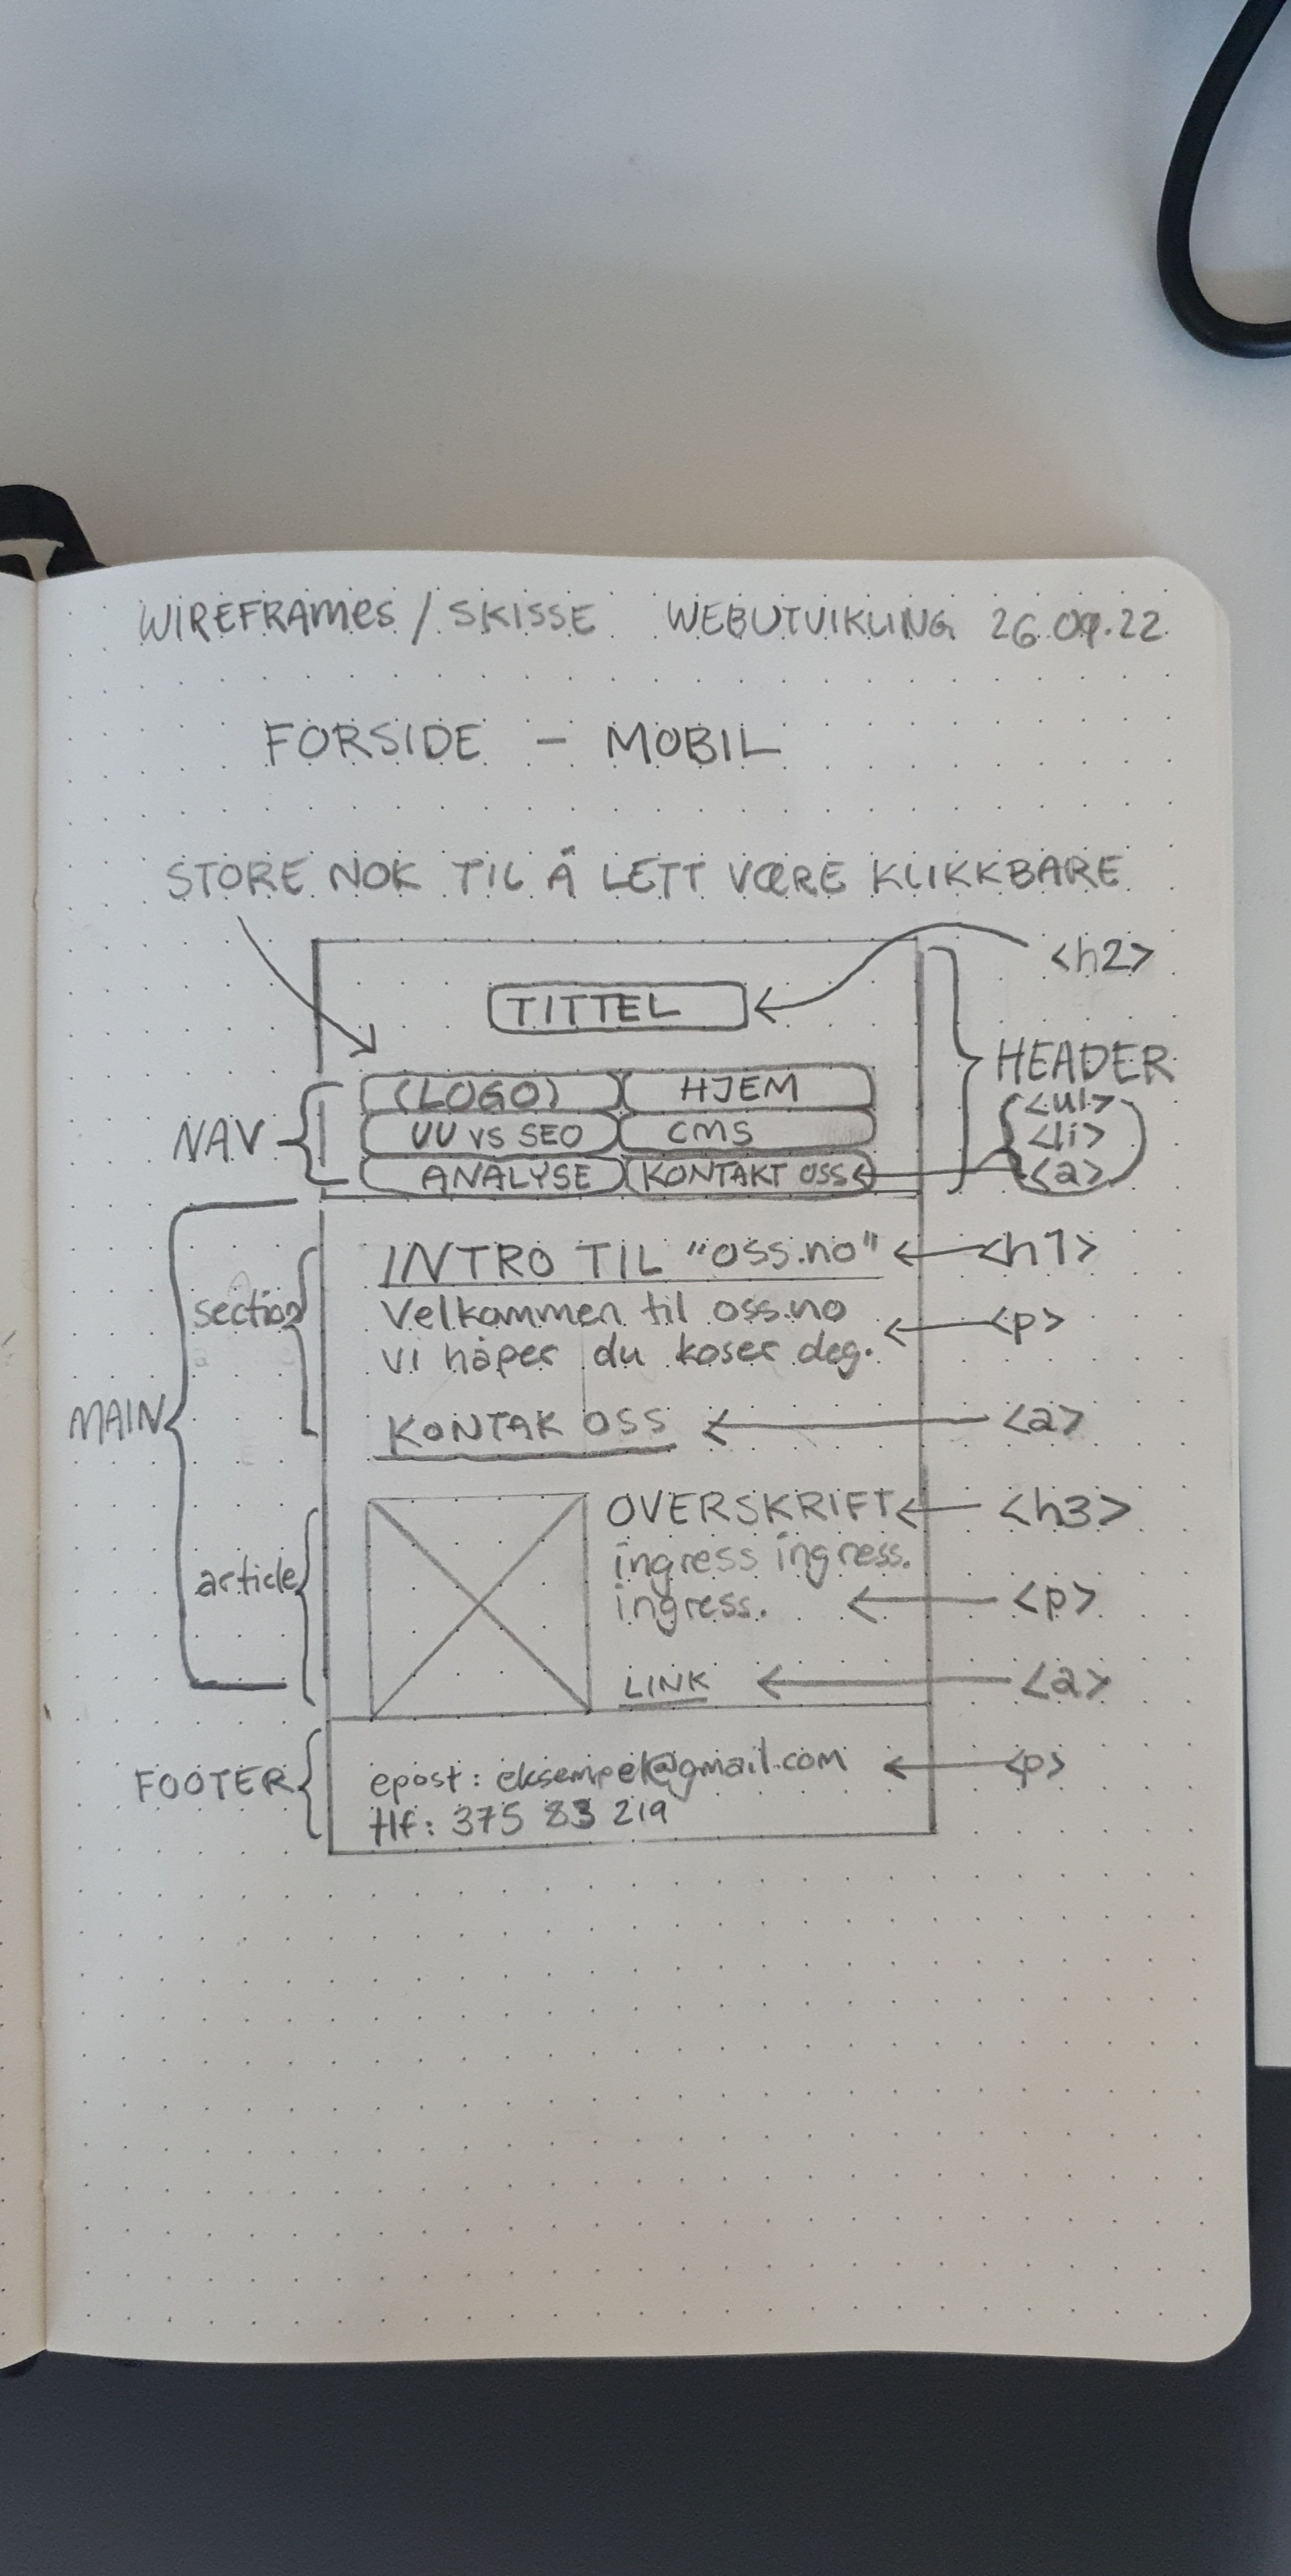 WIREFRAMES / SKISSE WEBUTVIKLING 26.09.22
FORSIDE – MOBIL
STORE NOK TIL Å LETT VÆRE KLIKKBARE
<h2>
TITTEL
HEADER
NAV
(LOGO) HJEM
<ul>
UU VS SEO CMS
<li>
ANALYSE KONTAKT OSS
<a>
MAIN
section
INTRO TIL "OSS.no" <h1>
Velkommen til oss.no
vi håper du koser deg. <p>
KONTAK OSS <a>
article
OVERSKRIFT <h3>
ingress ingress.
ingress. <p>
LINK <a>
FOOTER
epost: eksempel@gmail.com <p>
tlf: 375 83 219